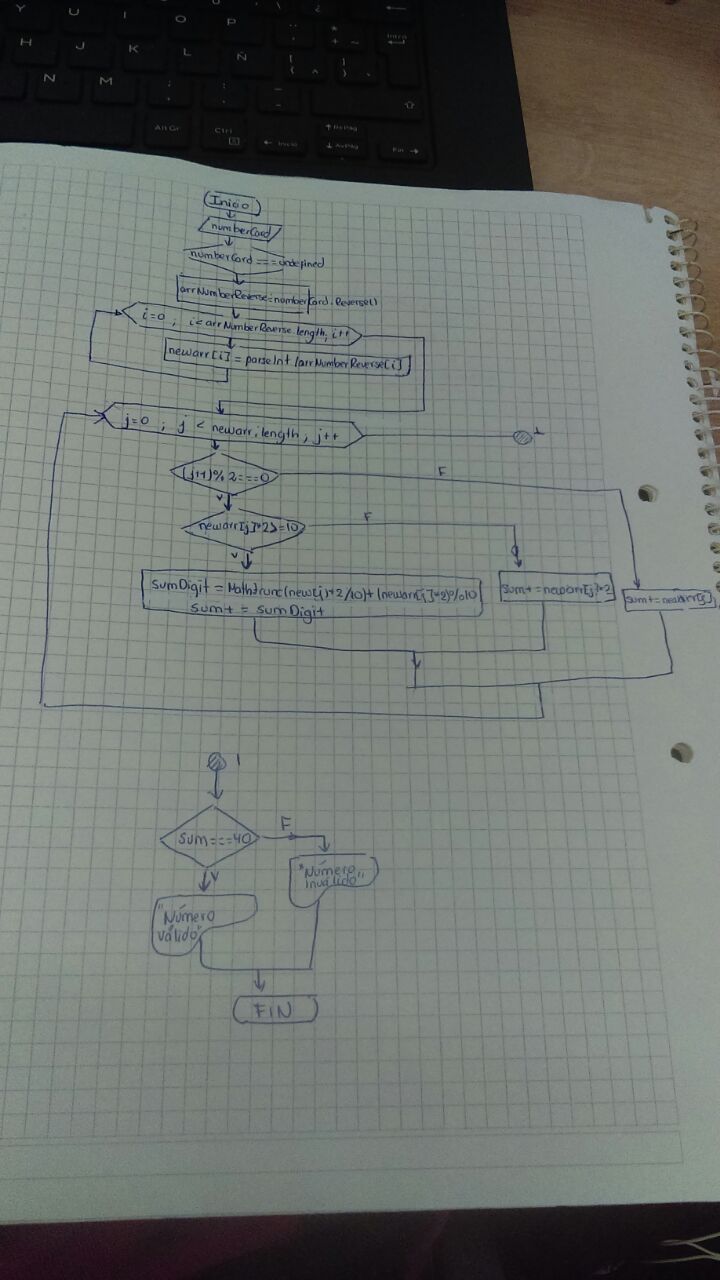 Y U I O P
H J K L Ñ
Intro
N M
Alt Gr Ctrl
Inicio
RePág
AvPág
Fin
Inicio
numberCard
numberCard === undefined
arrNumberReverse=numberCard.Reverse()
i=0, i<arrNumberReverse.length, i++
newarr[i] = parseInt(arrNumberReverse[i]
j=0, j < newarr.length, j++
1
(j+1)%2===0
F
V
newarr[j]*2>=10
F
V
sumDigit = Math.trunc(new[j]*2/10)+(newarr[j]*2)%10
sum+ = sumDigit
sum+=newarr[j]*2
sum+=newarr[j]
1
sum===40
F
V
"Número
inválido"
"Número
válido"
FIN